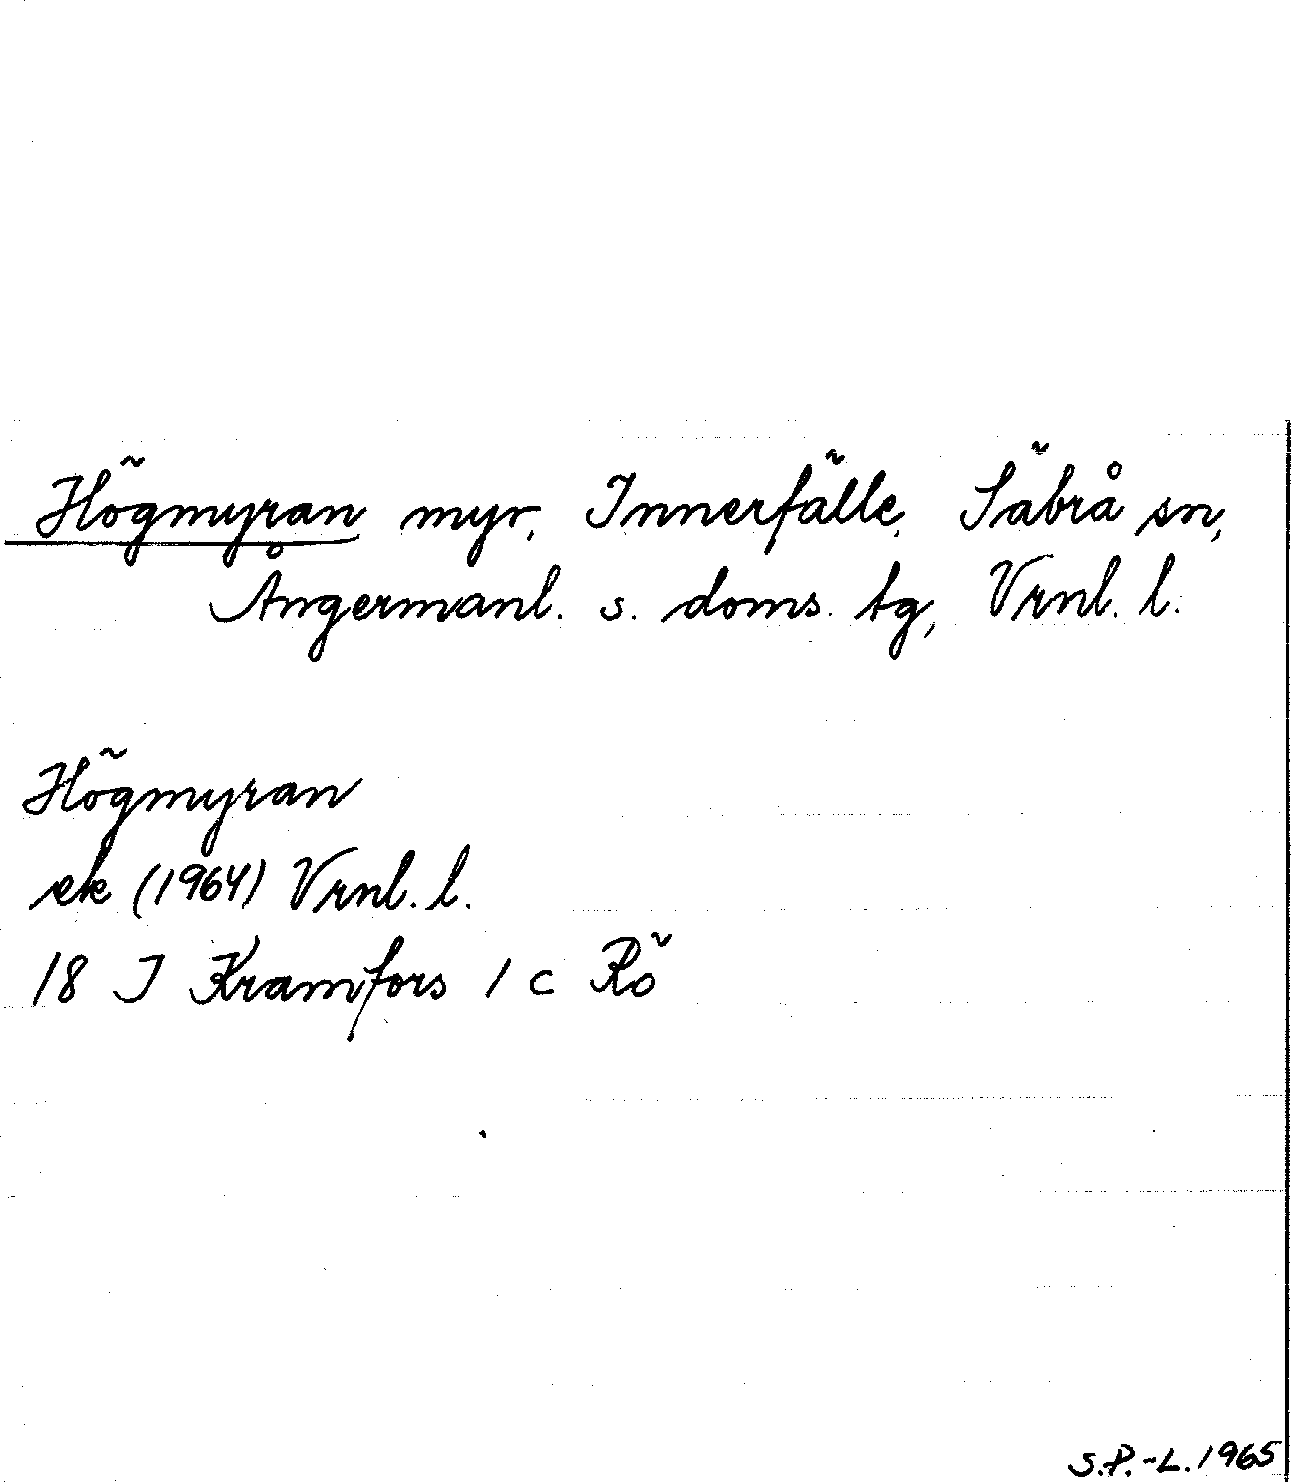 Högmyran myr, Innerfälle, Säbrå sn,
Ångermanl. s. doms. tg, Vrnl. l.
Högmyran
ek (1964) Vrnl. l.
18 I Kramfors 1 c Rö
S.P.-L. 1965